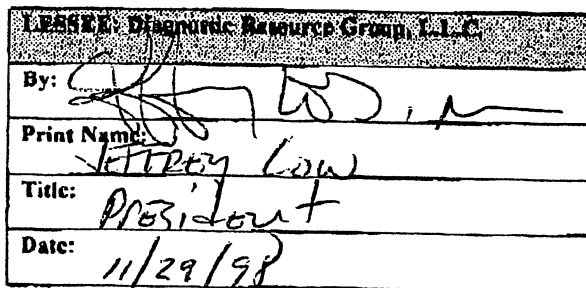 LESSEE: Diagnostic Resource Group, L.L.C.
By:
Print Name:
JEFFREY LOW
Title:
PRESIDENT
Date:
11/29/98